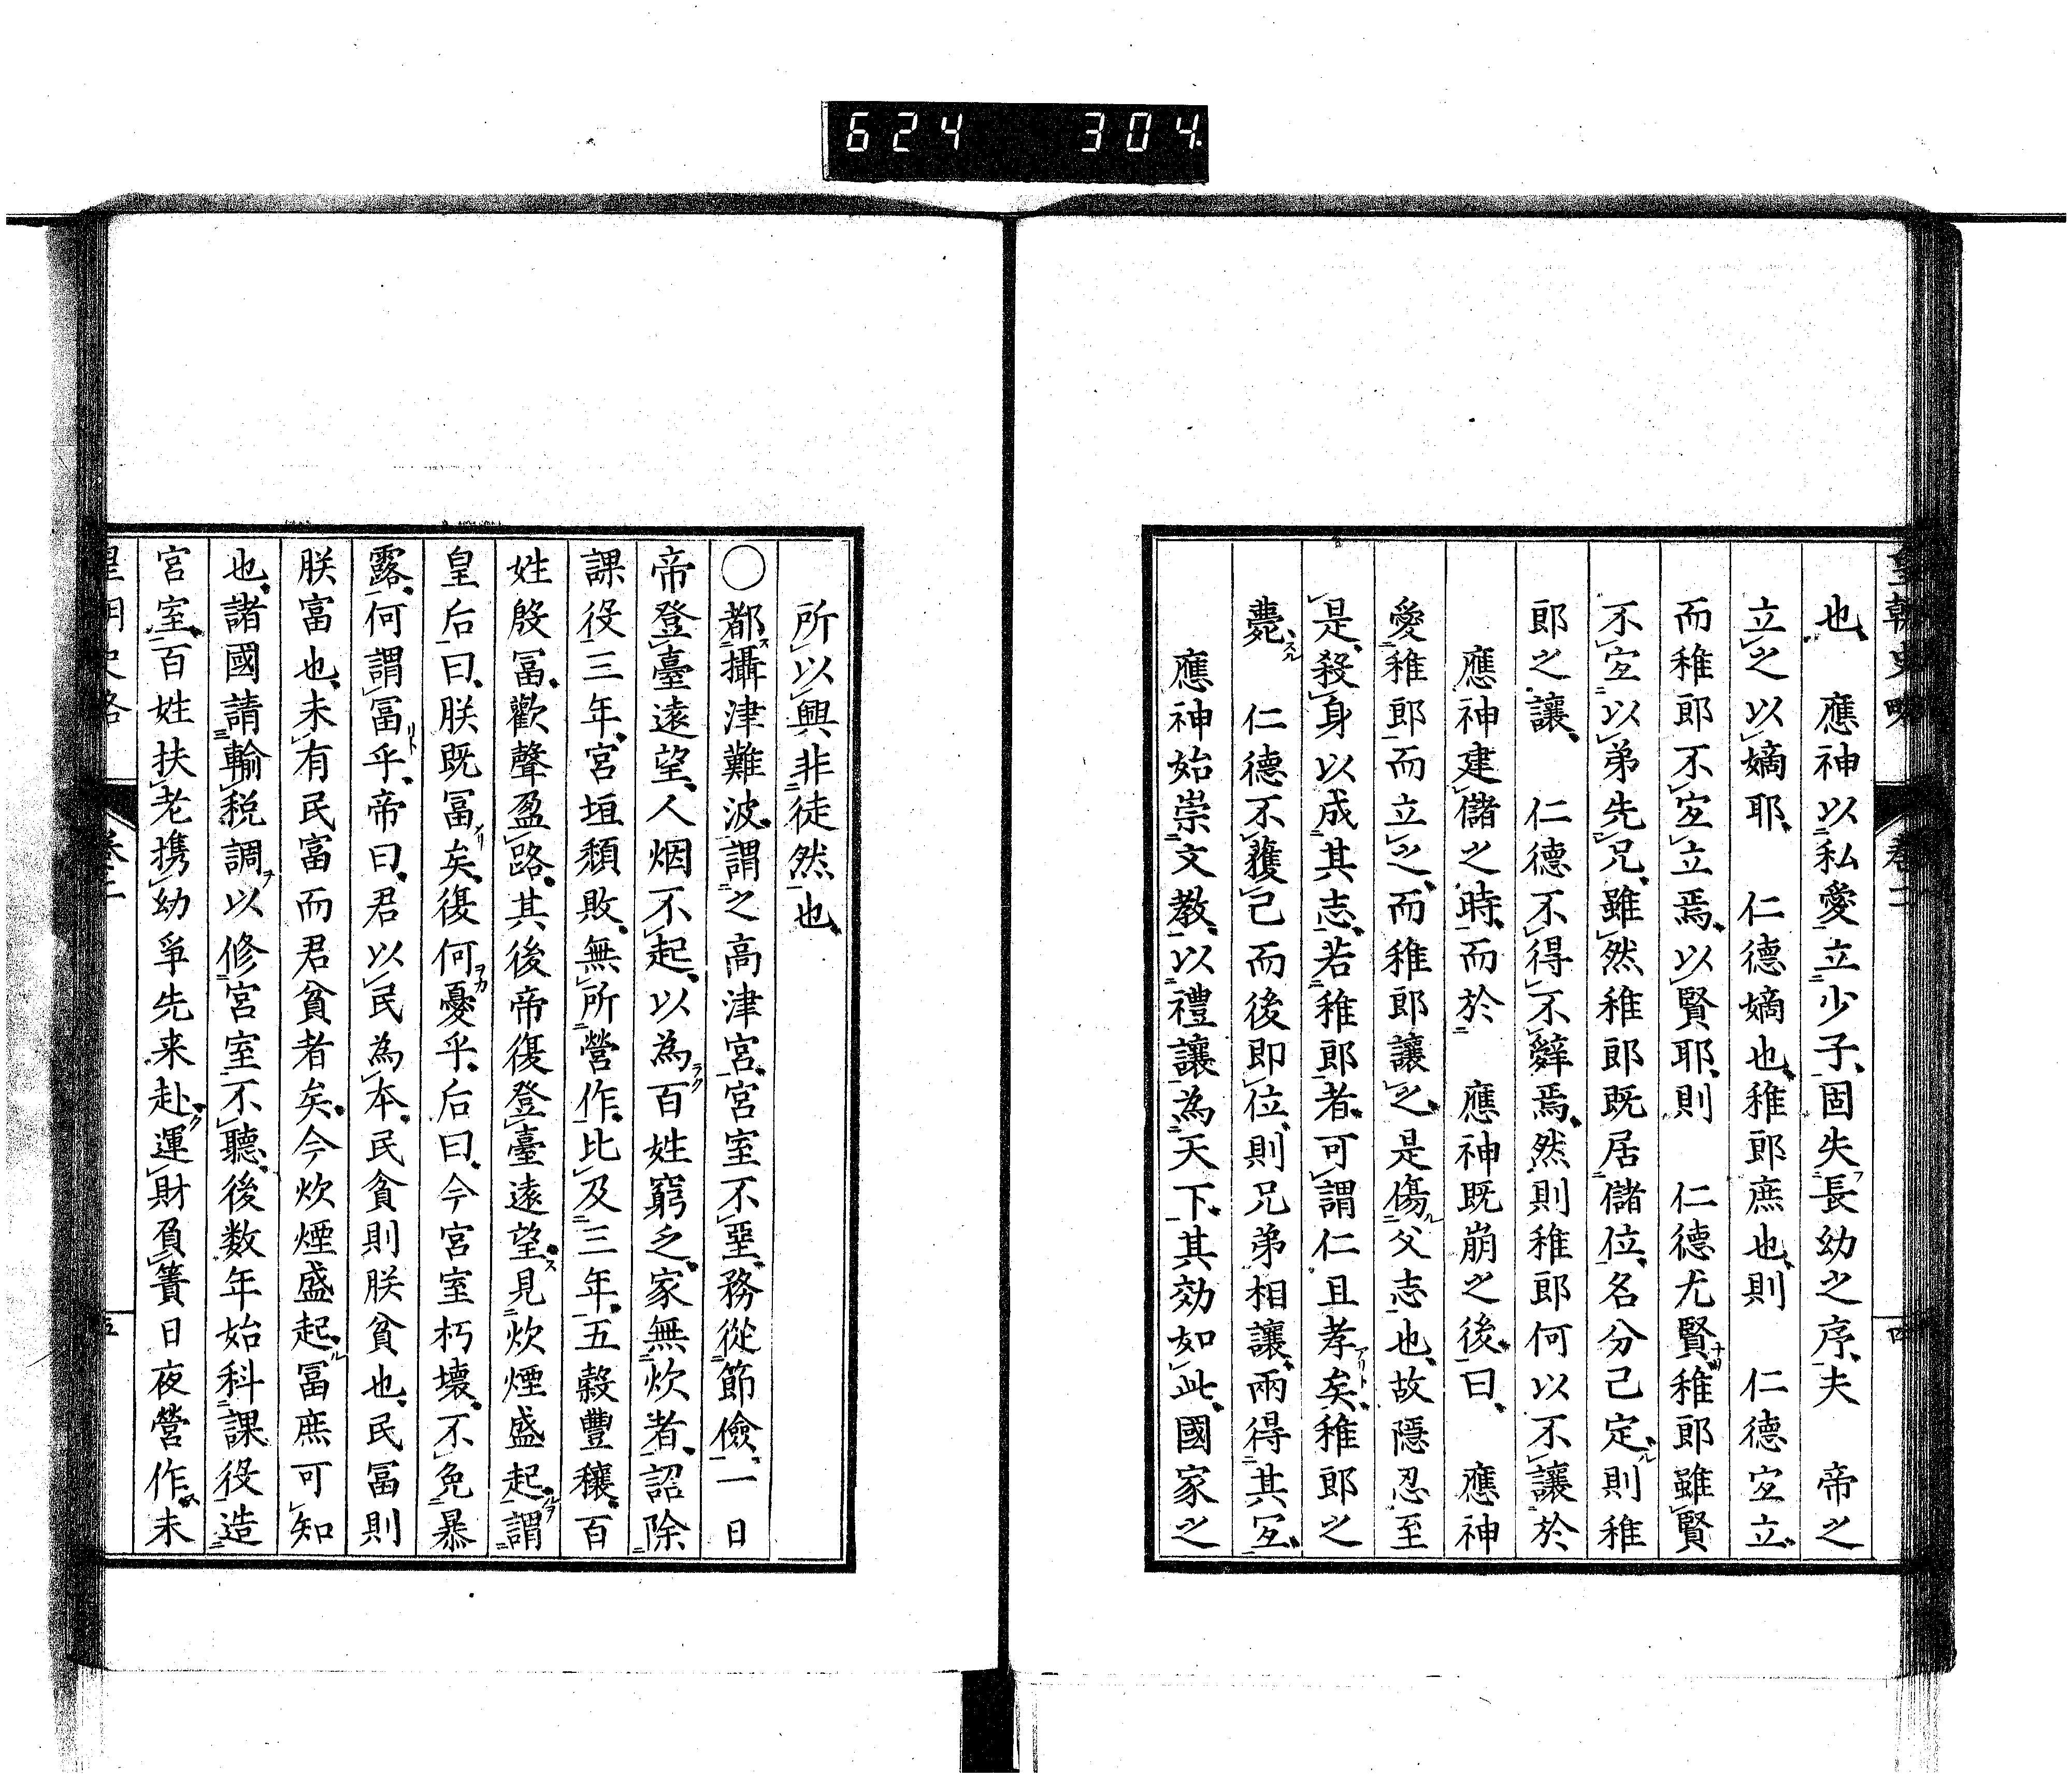 624 304
皇朝史略 卷二 四
也、應神以私愛立少子、固失長幼之序、夫 帝之
立之以嫡耶、仁德嫡也、稚郎庶也、則 仁德宜立、
而稚郎不宜立焉、以賢耶、則 仁德尤賢、稚郎雖賢
不宜以弟先兄、雖然稚郎既居儲位、名分已定、則稚
郎之讓、 仁德不得不辭焉、然則稚郎何以不讓於
應神建儲之時、而於 應神既崩之後、曰、 應神
愛稚郎而立之、而稚郎讓之、是傷父志也、故隱忍至
是、殺身以成其志、若稚郎者、可謂仁且孝矣、稚郎之
薨 仁德不獲已而後即位、則兄弟相讓、兩得其宜、
應神始崇文教、以禮讓為天下、其効如此、國家之
所以興非徒然也、
〇都攝津難波、謂之高津宮、宮室不堊、務從節儉、一日
帝登臺遠望、人烟不起、以為百姓窮乏、家無炊者、詔除
課役三年、宮垣頹敗、無所營作、比及三年、五穀豐穰、百
姓殷冨、歡聲盈路、其後帝復登臺遠望、見炊煙盛起、謂
皇后曰、朕既冨矣、復何憂乎、后曰、今宮室朽壞、不免暴
露、何謂冨乎、帝曰、君以民為本、民貧則朕貧也、民冨則
朕富也、未有民富而君貧者矣、今炊煙盛起、冨庶可知
也、諸國請輸税調以修宮室、不聽、後数年始科課役造
宮室、百姓扶老携幼爭先来赴、運財負簣日夜營作、未
皇朝史略 卷二 五